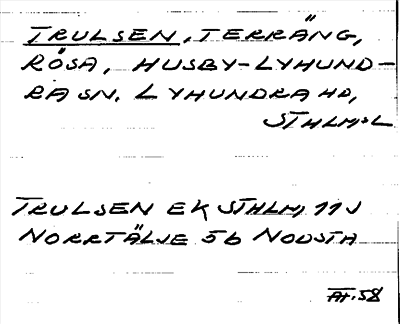 TRULSEN, TERRÄNG,
RÖSA, HUSBY-LYHUND-
RA SN. LYHUNDRA HD,
STHLMS L
TRULSEN EK STHLM, 11J
NORRTÄLJE 5b NODSTA
AT.58